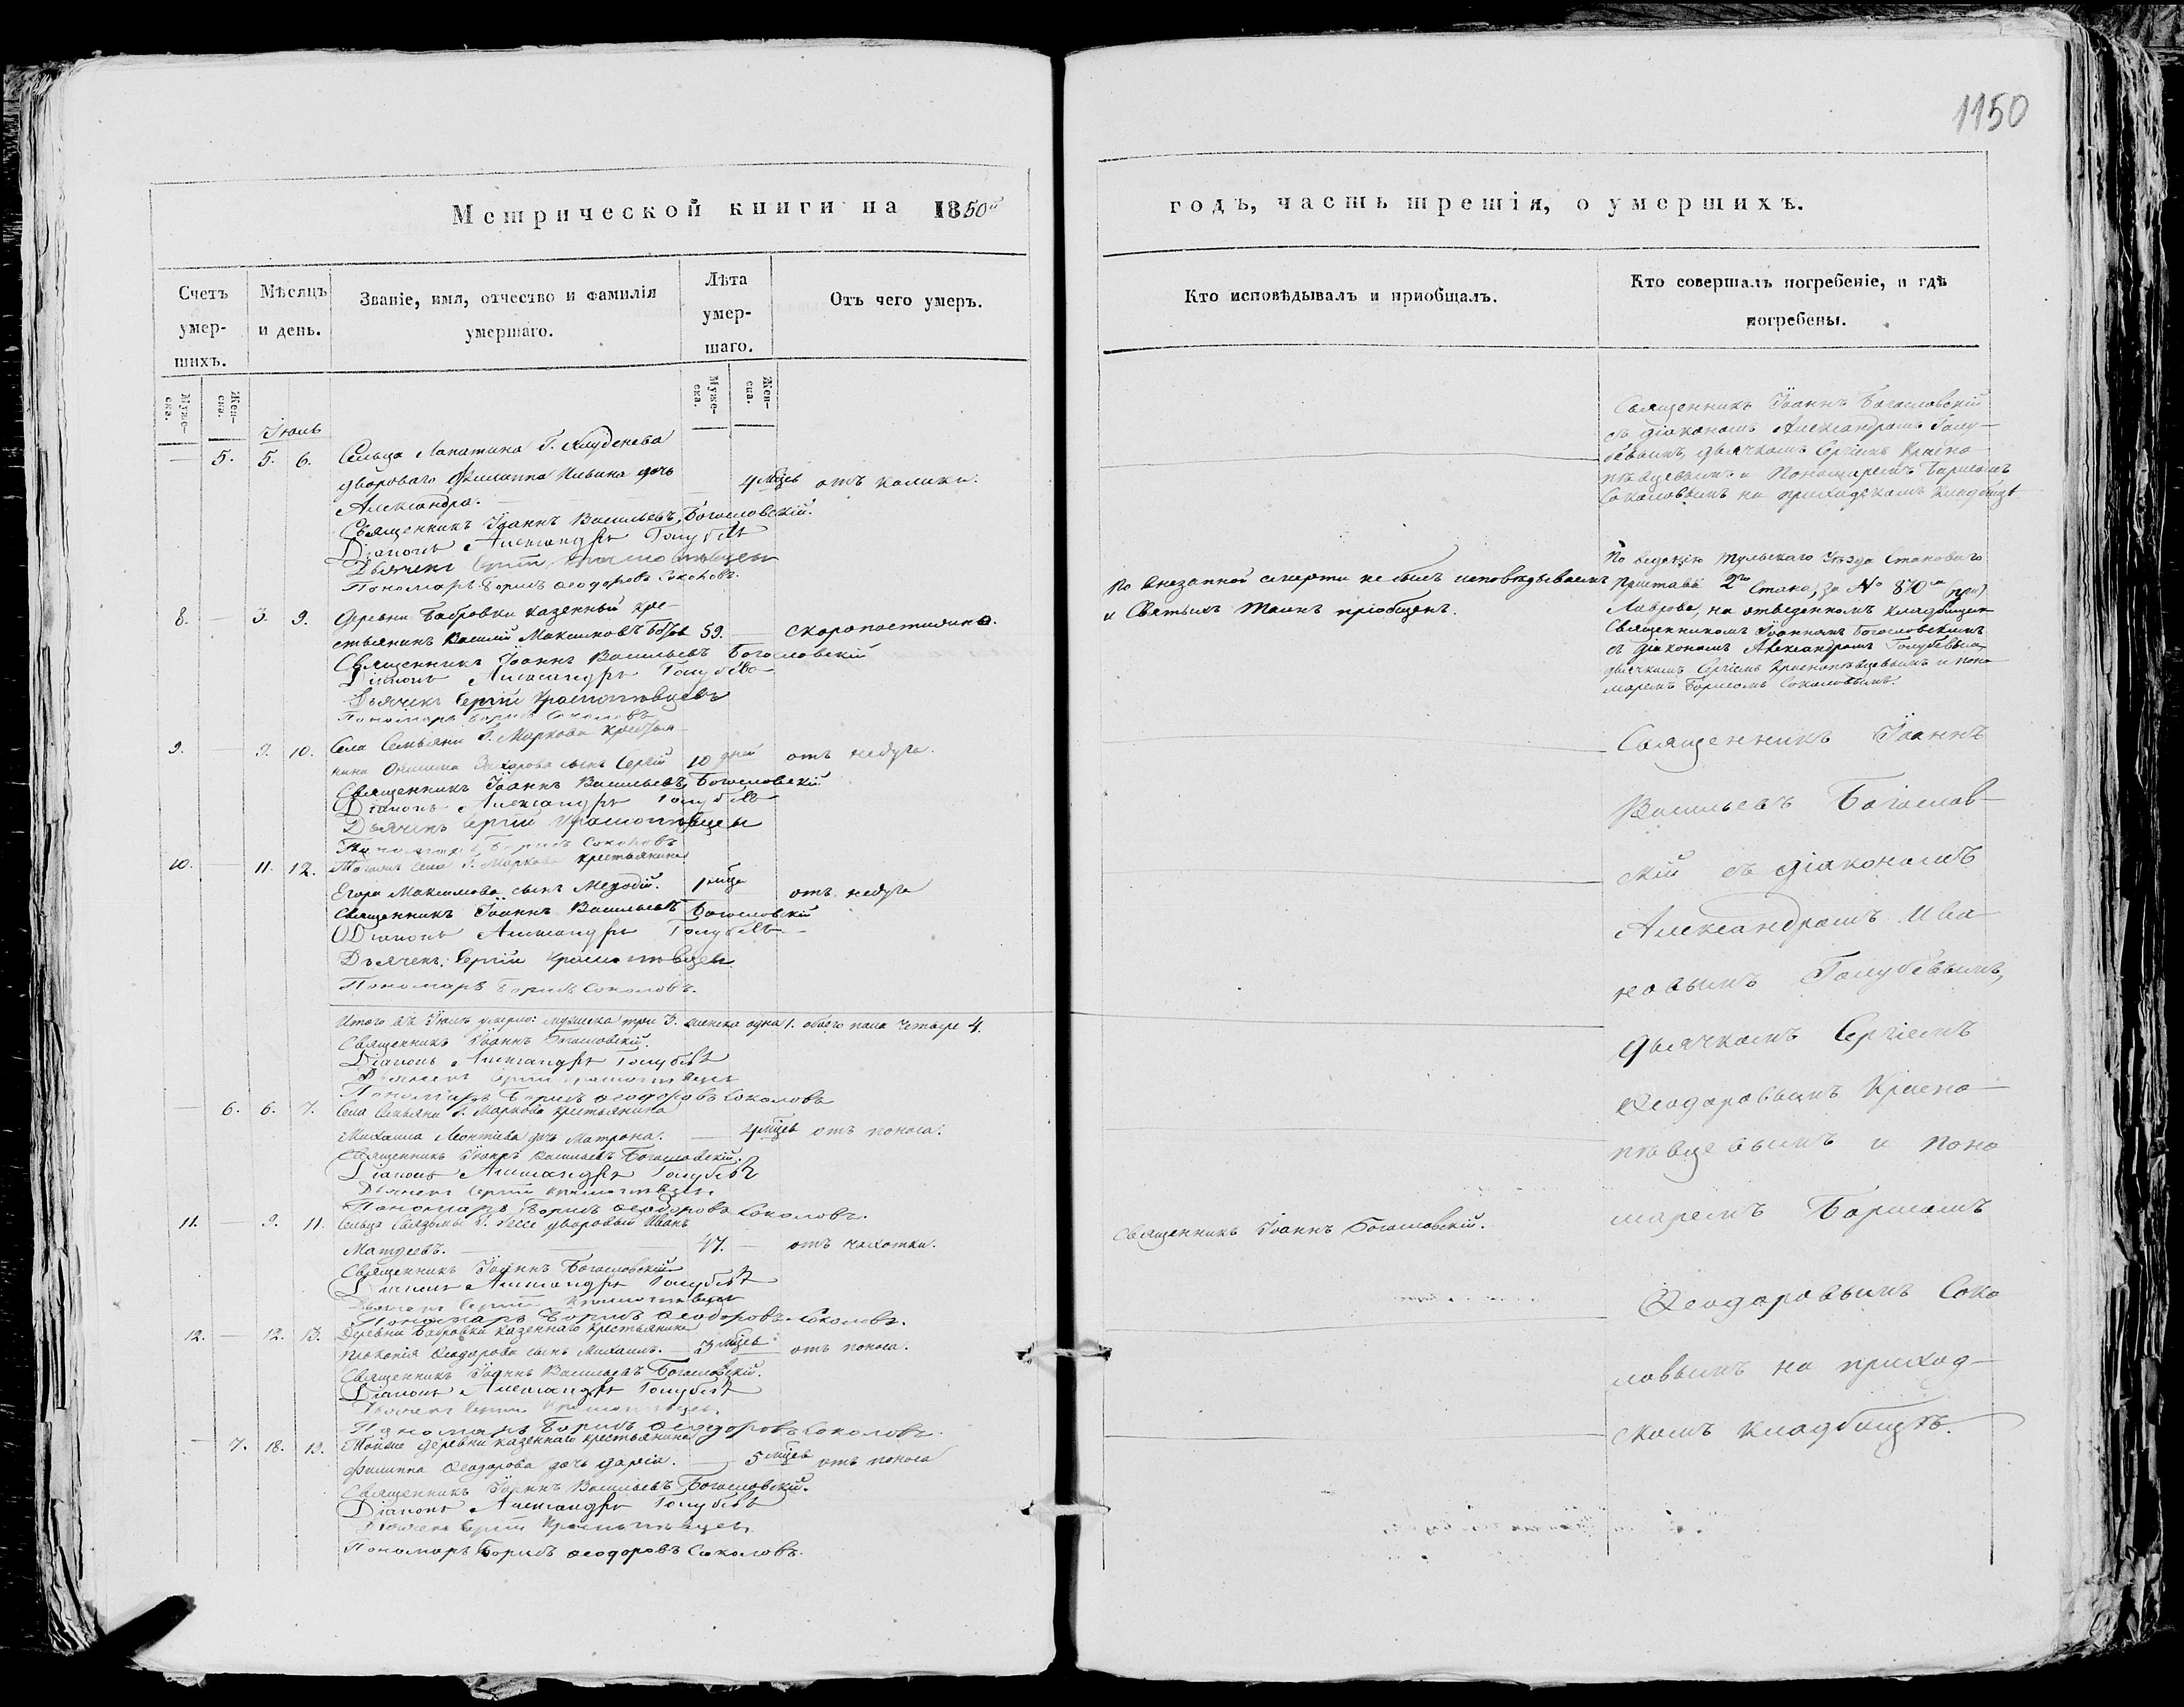 1150
Метрической книги на 1850й
годъ, часть третія, о умершихъ.
Счетъ умер-шихъ.
Мѣсяцъ и день.
Званіе, имя, отчество и фамилія умершаго.
Лѣта умер-шаго.
Отъ чего умеръ.
Кто исповѣдывалъ и пріобщалъ.
Кто совершалъ погребеніе, и гдѣ погребены.
Муже-ска.
Жен-ска.
Муже-ска.
Жен-ска.
Іюль
— 5. 5. 6. Сельца Лапатина Г.
двороваго Филиппа Ильина дочь — 4 мѣсяцъ отъ колики.
Александра.
Священникъ Іоаннъ Васильевъ Богословскій.
Діаконъ Александръ Голубевъ
Дьячекъ Сергій Краснопѣвцевъ
Пономарь Борисъ Ѳеодоровъ Соколовъ.
Священникъ Іоаннъ Богословскій
съ діакономъ Александромъ Голу-
бевымъ, дьячкомъ Сергіемъ Красно-
пѣвцевымъ и Пономаремъ Борисомъ
Соколовымъ на приходскомъ кладбищѣ
8. — 3. 9. Деревни Бобровки казенный кре-
стьянинъ Василій Максимовъ 59. — скоропостижно.
Священникъ Іоаннъ Васильевъ Богословскій
Діаконъ Александръ Голубевъ
Дьячекъ Сергій Краснопѣвцевъ
Пономарь Борисъ Соколовъ
По внезапной смерти не былъ исповѣдываемъ
и Святыхъ Таинъ пріобщенъ.
По веденію Тульскаго Уѣзда Становаго
Пристава 2го Стана, за № 810м
Лаврова, на отведенномъ кладбищѣ
Священникомъ Іоанномъ Богословскимъ
съ діакономъ Александромъ Голубевымъ
дьячкомъ Сергіемъ Краснопѣвцевымъ и поно-
маремъ Борисомъ Соколовымъ.
9. — 9. 10. Села Семьяни Г. Маркова крестья-
нина Онисима Захарова сынъ Сергій 10 дней отъ недуга.
Священникъ Іоаннъ Васильевъ Богословскій
Діаконъ Александръ Голубевъ
Дьячекъ Сергій Краснопѣвцевъ
Пономарь Борисъ Соколовъ
10. — 11. 12. Тогожъ Села Г. Маркова крестьянина
Егора Максимова сынъ Меѳодій. 1 мѣсяца отъ недуга
Священникъ Іоаннъ Васильевъ Богословскій
Діаконъ Александръ Голубевъ
Дьячекъ Сергій Краснопѣвцевъ
Пономарь Борисъ Соколовъ.
Итого въ Іюлѣ умерло: мужеска три 3. женска одна 1. обоего пола четыре 4.
Священникъ Іоаннъ Богословскій.
Діаконъ Александръ Голубевъ
Дьячекъ Сергій Краснопѣвцевъ
Пономарь Борисъ Ѳеодоровъ Соколовъ
— 6. 6. 7. Села Семьяни Г. Маркова крестьянина
Михаила Леонтіева дочь Матрона. — 4 мѣсяцъ отъ поноса.
Священникъ Іоаннъ Васильевъ Богословскій.
Діаконъ Александръ Голубевъ
Дьячекъ Сергій Краснопѣвцевъ
Пономарь Борисъ Ѳеодоровъ Соколовъ.
11. — 9. 11. Сельца Г. дворовый Иванъ
Матѳеевъ. — 47. — отъ чахотки.
Священникъ Іоаннъ Богословскій
Діаконъ Александръ Голубевъ
Дьячекъ Сергій Краснопѣвцевъ
Пономарь Борисъ Ѳеодоровъ Соколовъ.
Священникъ Іоаннъ Богословскій.
12. — 12. 13. Деревни Бобровки казеннаго крестьянина
Прокопія Ѳеодорова сынъ Михаилъ. — 3 мѣсяцъ — отъ поноса.
Священникъ Іоаннъ Васильевъ Богословскій.
Діаконъ Александръ Голубевъ
Дьячекъ Сергій Краснопѣвцевъ
Пономарь Борисъ Ѳеодоровъ Соколовъ.
— 7. 18. 19. Тойже деревни казеннаго крестьянина
Филиппа Ѳеодорова дочь Дарія. — 5 мѣсяцъ отъ поноса
Священникъ Іоаннъ Васильевъ Богословскій.
Діаконъ Александръ Голубевъ
Дьячекъ Сергій Краснопѣвцевъ
Пономарь Борисъ Ѳеодоровъ Соколовъ.
Священникъ Іоаннъ
Васильевъ Богослов-
скій съ діакономъ
Александромъ Ива
новымъ Голубевымъ,
дьячкомъ Сергіемъ
Ѳеодоровымъ Красно-
пѣвцевымъ и поно
маремъ Борисомъ
Ѳеодоровымъ Соко
ловымъ на приход-
скомъ кладбищѣ.